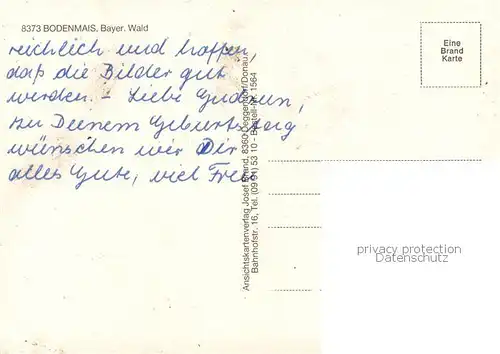 8373 BODENMAIS, Bayer. Wald
reichlich und hoffen,
daß die Bilder gut
werden. – Liebe Gudrun,
zu Deinem Geburtstag
wünschen wir Dir
alles Gute, viel Freu
Ansichtskartenverlag Josef Brand, 8360 Deggendorf/Donau,
Bahnhofstr. 16, Tel. (09 91) 53 10 - Bestell-Nr. 1564
Eine
Brand
Karte
privacy protection
Datenschutz